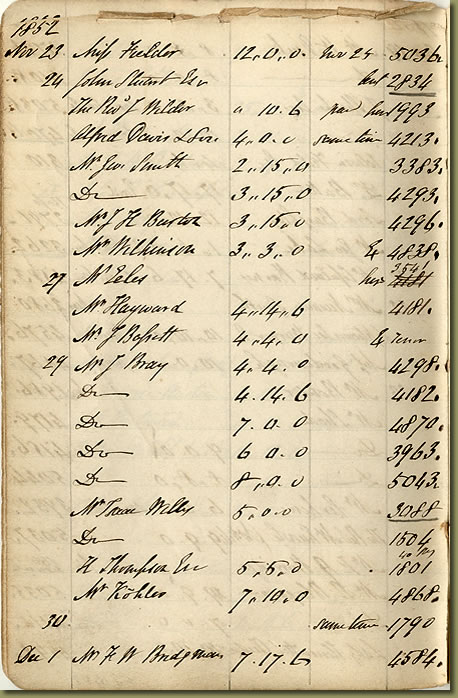 1852
Nov 23 Miss Fielder 12.0.0 Nov 25 5036
24 John Stuart Esr 2834
The Revd J Wilder 10.6 1993
Alfred Davis & Son 4.0.0 same time 4213.
Mr Geo. Smith 2.15.0 3383.
Do 3.15.0 4293.
Mr J H Burton 3.15.0 4296.
Mr Wilkinson 3.3.0 & 4838.
27 Mr Eeles
Mr Hayward 4.14.6 4181.
Mr J Bassett 4.4.0 & Tenor
29 Mr J Bray 4.4.0 4298.
Do 4.14.6 4182.
Do 7.0.0 4870.
Do 6.0.0 3963.
Do 8.0.0 5043
Mr Isaac Willis 5.0.0 3088
Do 1504
H Thompson Esr 5.5.0 1801
Mr Köhler 7.10.0 4868.
30. same time 1790
Dec 1 Mr H W Bridgman 7.17.6 4584.